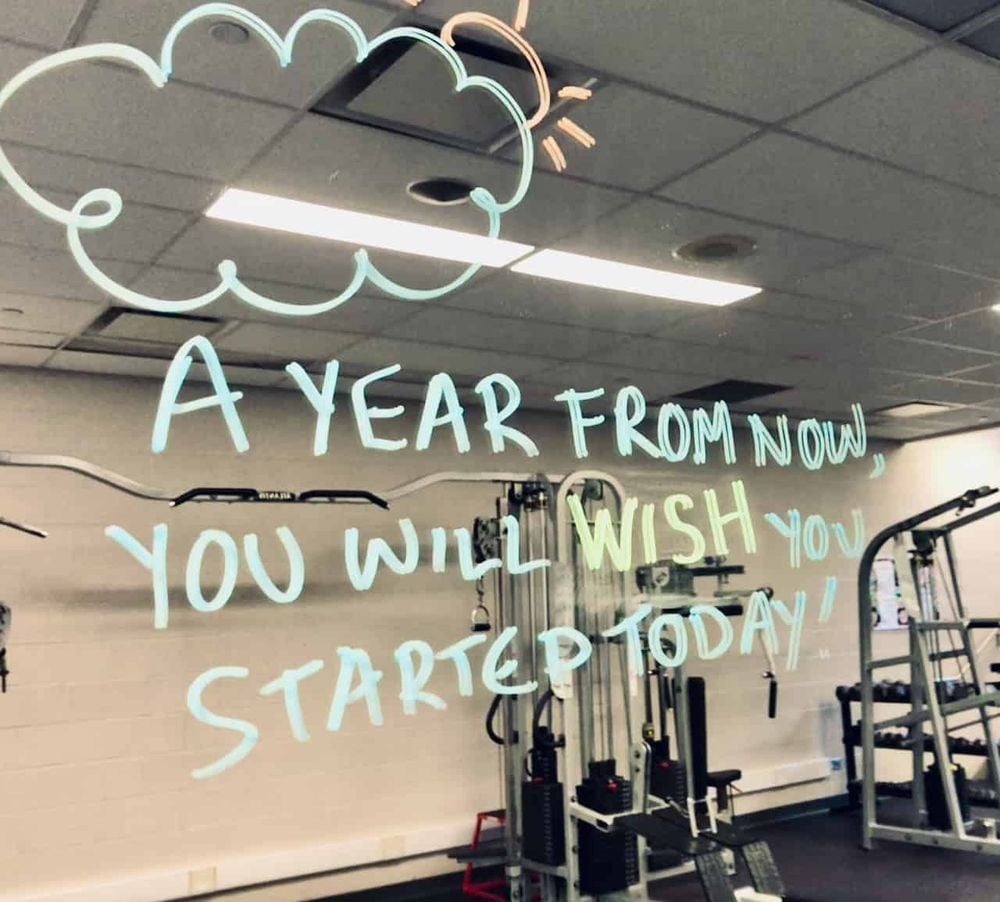 A YEAR FROM NOW,
YOU WILL WISH YOU
STARTED TODAY"
ATLANTIS